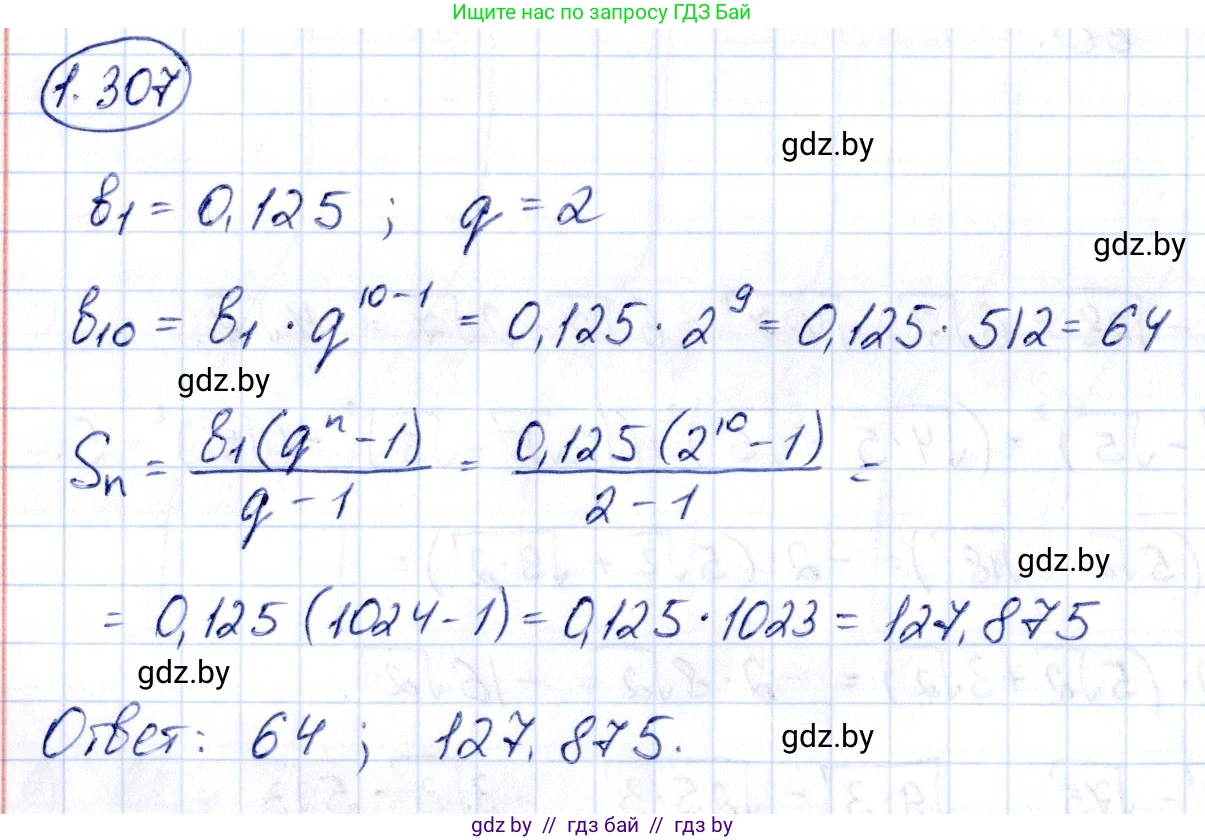 Ищите нас по запросу ГДЗ Бай
1.307
gdz.by
b₁ = 0,125 ; q = 2
gdz.by
b₁₀ = b₁ · q¹⁰⁻¹ = 0,125 · 2⁹ = 0,125 · 512 = 64
gdz.by
Sₙ = b₁(qⁿ - 1) / (q - 1) = 0,125 (2¹⁰ - 1) / (2 - 1) =
gdz.by
= 0,125 (1024 - 1) = 0,125 · 1023 = 127,875
gdz.by
Ответ: 64 ; 127,875.
gdz.by
gdz.by // гдз бай // гдз by